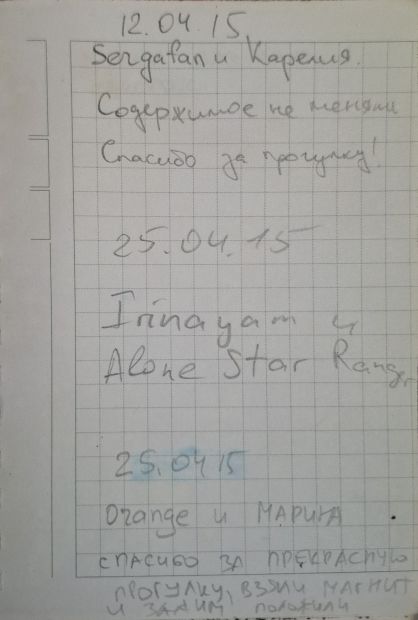 12.04.15.
Sergafan и Карелия.
Содержимое не меняли
Спасибо за прогулку!
25.04.15
Irinayam и
Alone Star Ranger
25.04 15
Orange и МАРИНА
СПАСИБО ЗА ПРЕКРАСНУЮ
ПРОГУЛКУ, ВЗЯЛИ МАГНИТ
И положили